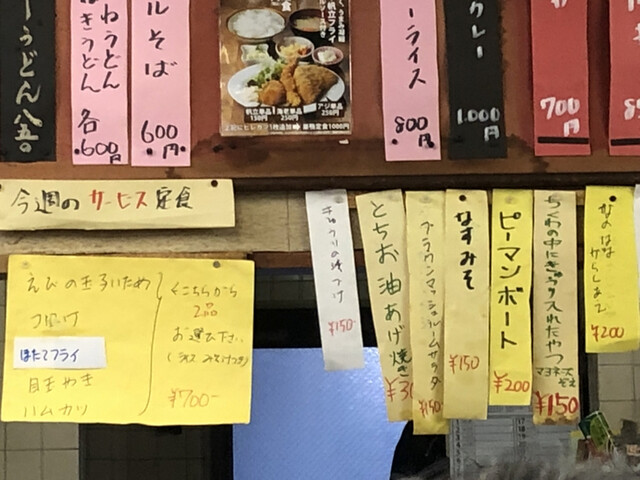 ーうどん 八五〇
わうどん
きうどん 各600円
ルそば 600円
定食
帆立フライ
帆立単品 150円
海老単品 250円
アジ単品 250円
ーライス 800円
カレー 1,000円
700円
今週のサービス定食
えびの玉子いため
つくね
ほたてフライ
目玉やき
ハムカツ
こちらから
2品
お選び下さい
(ライス みそ汁つき)
¥700-
きゅうりの浅づけ ¥150
とちお油あげ焼き ¥30
ブラウンマッシュルームサラダ ¥150-
なすみそ ¥150
ピーマンボート ¥200
ちくわの中にきゅうり入れたやつ
マヨネーズ
ぞえ
¥150
なのはな
からしあえ
¥200